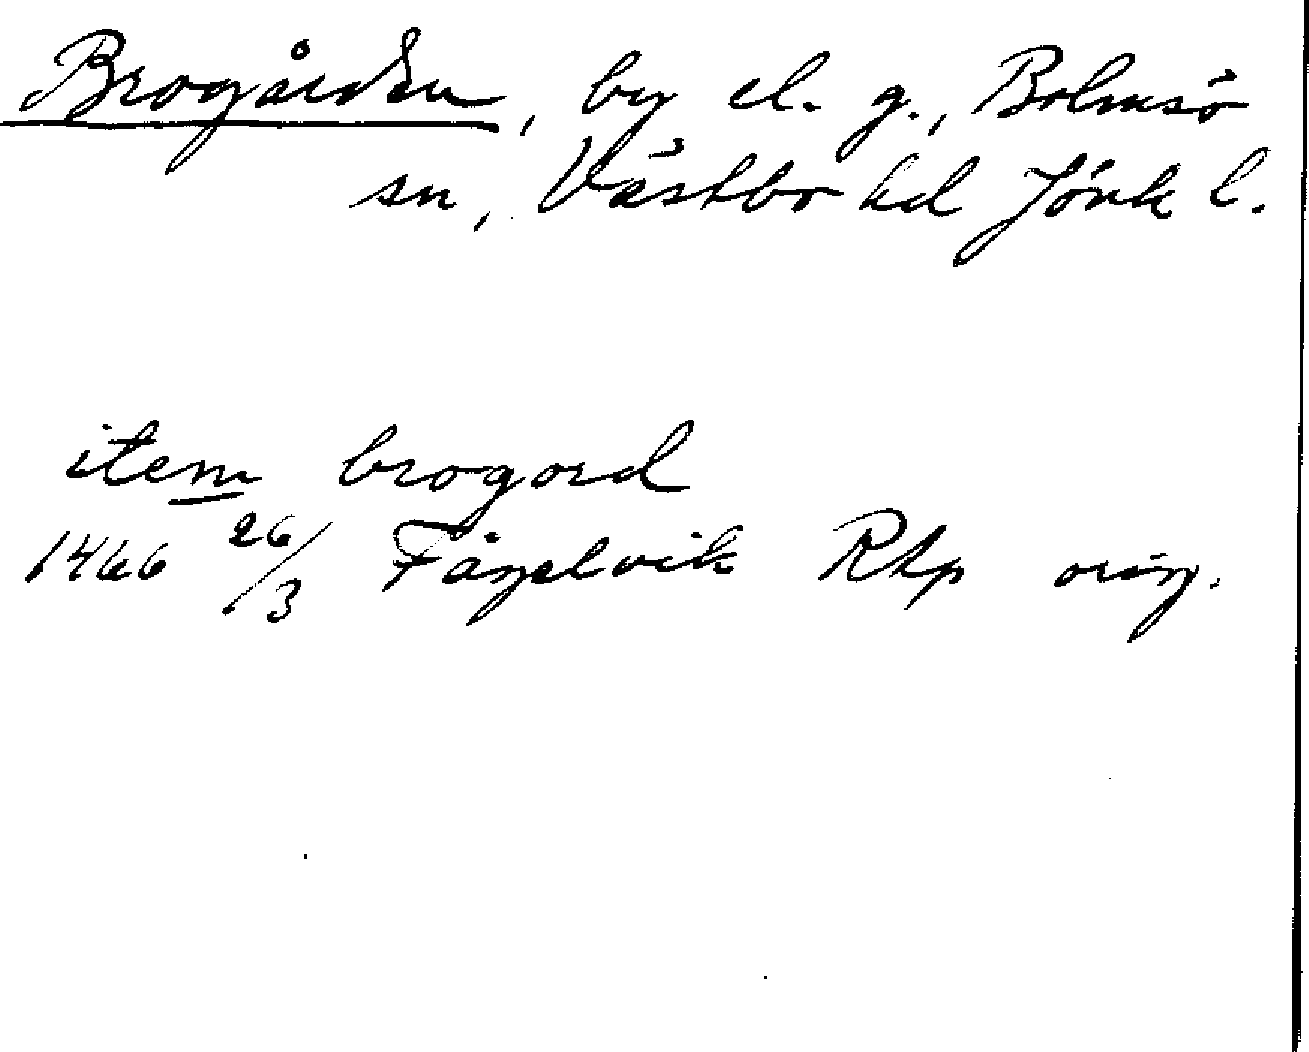 Brogården, by el. g., Bolmsö
sn, Västbo hd Jönk l.
item brogord
1466 26/3 Fångelvik Rhp orig.